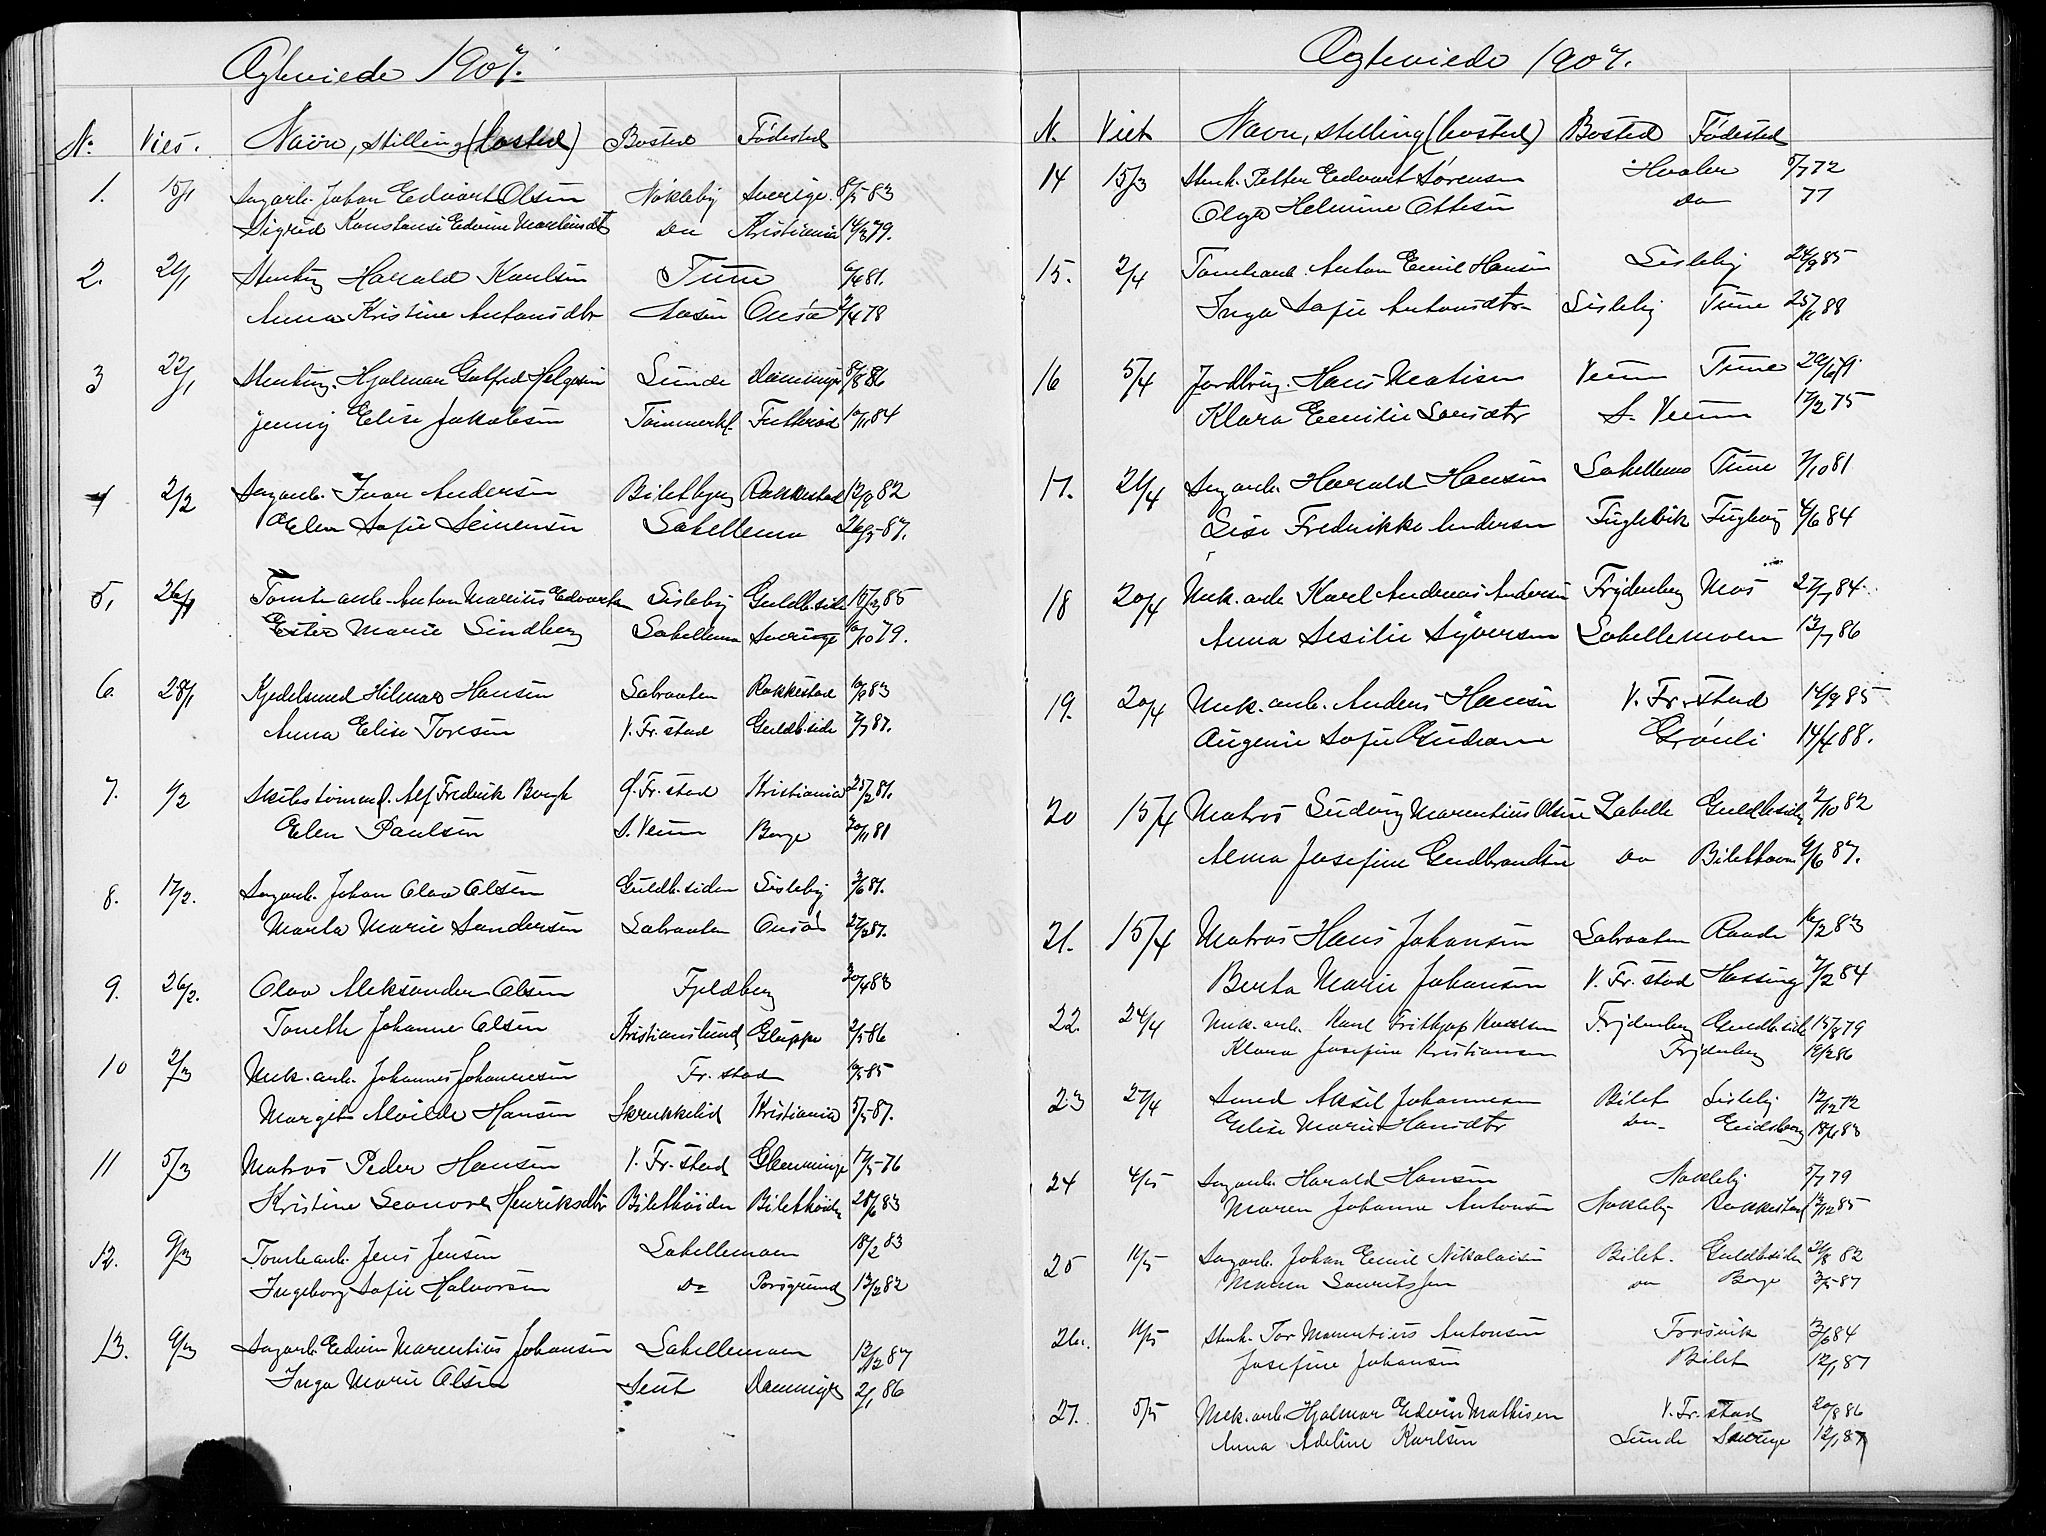 Ægteviede 1907.
No. Vies. Navn, stilling (bosted) Bosted Födested
1. 15/1 Sagarb. Johan Edvart Olsen Nökleby Sverige 83
Sigrid Konstanse Edvine Martinsdt Do Kristiania 79.
2. 21/1 Stenhug Harald Karlsen Tune 81.
Anna Kristine Antonsdtr Aasen Onsö 78
3 22/1 Stenhug. Hjalmar Gotfred Helgesen Lunde Glemminge 86
Jenny Elise Jakobsen Tömmerhl. Futterød 84
4 2/2 Sagarb. Ivar Andersen Biletbyen Rakkestad 12/9 82
Elen Sofie Steinersen Labellemo 87.
5, 26/1 Tomtearb. Anton Marius Edvartsen Lisleby Guldb.siden 85
Ester Marie Lindberg Labellemo Sverige 79.
6. 28/1 Kjedelsmed Hilmar Hansen Labraaten Rakkestad 83
Anna Elise Toresen V. Fr. stad Guldb.side 87.
7. 1/2 Skibstömmerm. Alf Fredrik Borgh G. Fr. stad Kristiania 25/2 81.
Elen Paulsen S. Veum Borge 20/11 81
8. 17/2. Sagarb. Johan Olav Olsen Guldb.siden Lisleby 87.
Marta Marie Sandersen Labraaten Onsö 87.
9. 26/2. Olav Aleksander Olsen Fjeldberg 20/4 83
Tomette Johanne Olsen Kristianslund Gluppe 2/5 86
10 2/3 Mek. arb. Johannes Johannesen Fr. stad 85
Margit Alvilde Hansen Skrukkelid Kristiania 5/5 87.
11 5/3 Matros Peder Hansen V. Fr. stad Glemminge 17/5 76
Kristine Leonore Henriksdtr Bilethöiden Bilethöiden 28/6 83
12. 9/3 Tomtearb. Jens Jensen Labellemoen 18/2 83
Ingeborg Sofie Halvorsen Do Porsgrund 13/2 82
13. 9/3 Sagarb. Edvin Marentius Johansen Labellemoen 12/12 87
Inga Marie Olsen Leut Glemminge 2/1 86
Ægteviede 1907.
N. Viet Navn, stilling (bosted) Bosted Födested
14 15/3 Stenh. Petter Edvart Sørensen Hvaler 5/7 72
Olga Helmine Ottesen Do 77
15. 2/4 Tomtearb. Anton Emil Hansen Lisleby 24/9 85
Inga Sofie Antonsdtr Lisleby Tune 88
16 5/4 Jordbrug. Hans Matisen Veum Tune 79.
Klara Emilie Larsdtr S. Veum 12/2 75
17. 21/4 Sagarb. Harald Hansen Labellemo Tune 7/10 81
Lise Fredrikke Andersen Fuglevik Fuglevig 4/6 84
18 20/4 Mek. arb Karl Andreas Andersen Frydenberg Mos 27/7 84.
Anna Sesilie Syversen Labellemoen 13/7 86
19. 20/4 Mek. arb. Anders Hansen V. Fr. stad 14/9 85
Augenie Sofie Gudram Grönli 14/4 88.
20 15/4 Matros Ludvig Marentius Olsen Labelle Guldb.siden 2/10 82
Alma Josefine Gudbrandsen Do Bilettoen 9/6 87.
21. 15/4 Matros Hans Johansen Labraaten Raade 16/2 83
Berta Marie Johansen V. Fr. stad Hassing 7/2 84
22. 24/4 Mek. arb. Karl Frithjof Karlsen Frydenberg Guldb.side 15/8 79
Klara Josefine Kristiansen Frydenberg 19/2 86
23 27/4 Smed Aksel Johannesen Bilet Lisleby 12/12 72
Elise Marie Hansdtr Do Eidsberg 18/6 83
24 4/5 Sagarb. Harald Hansen Nökleby 5/7 79
Maren Johanne Antonsen Nökleby Rakkestad 13/12 85
25 11/5 Sagarb. Johan Emil Nikolaisen Bilet. Guldb.siden 21/8 82
Maren Lauritssen do Borge 3/5 87
26. 11/5 Stenh. Tor Marentius Antonsen Trosvik 3/6 84
Josefine Johansen Bilet 12/1 87
27. 5/5 Mek. arb. Hjalmar Edvin Mathisen V. Fr. stad 20/8 86
Anna Adeline Karlsen Lunde Sverige 12/1 87